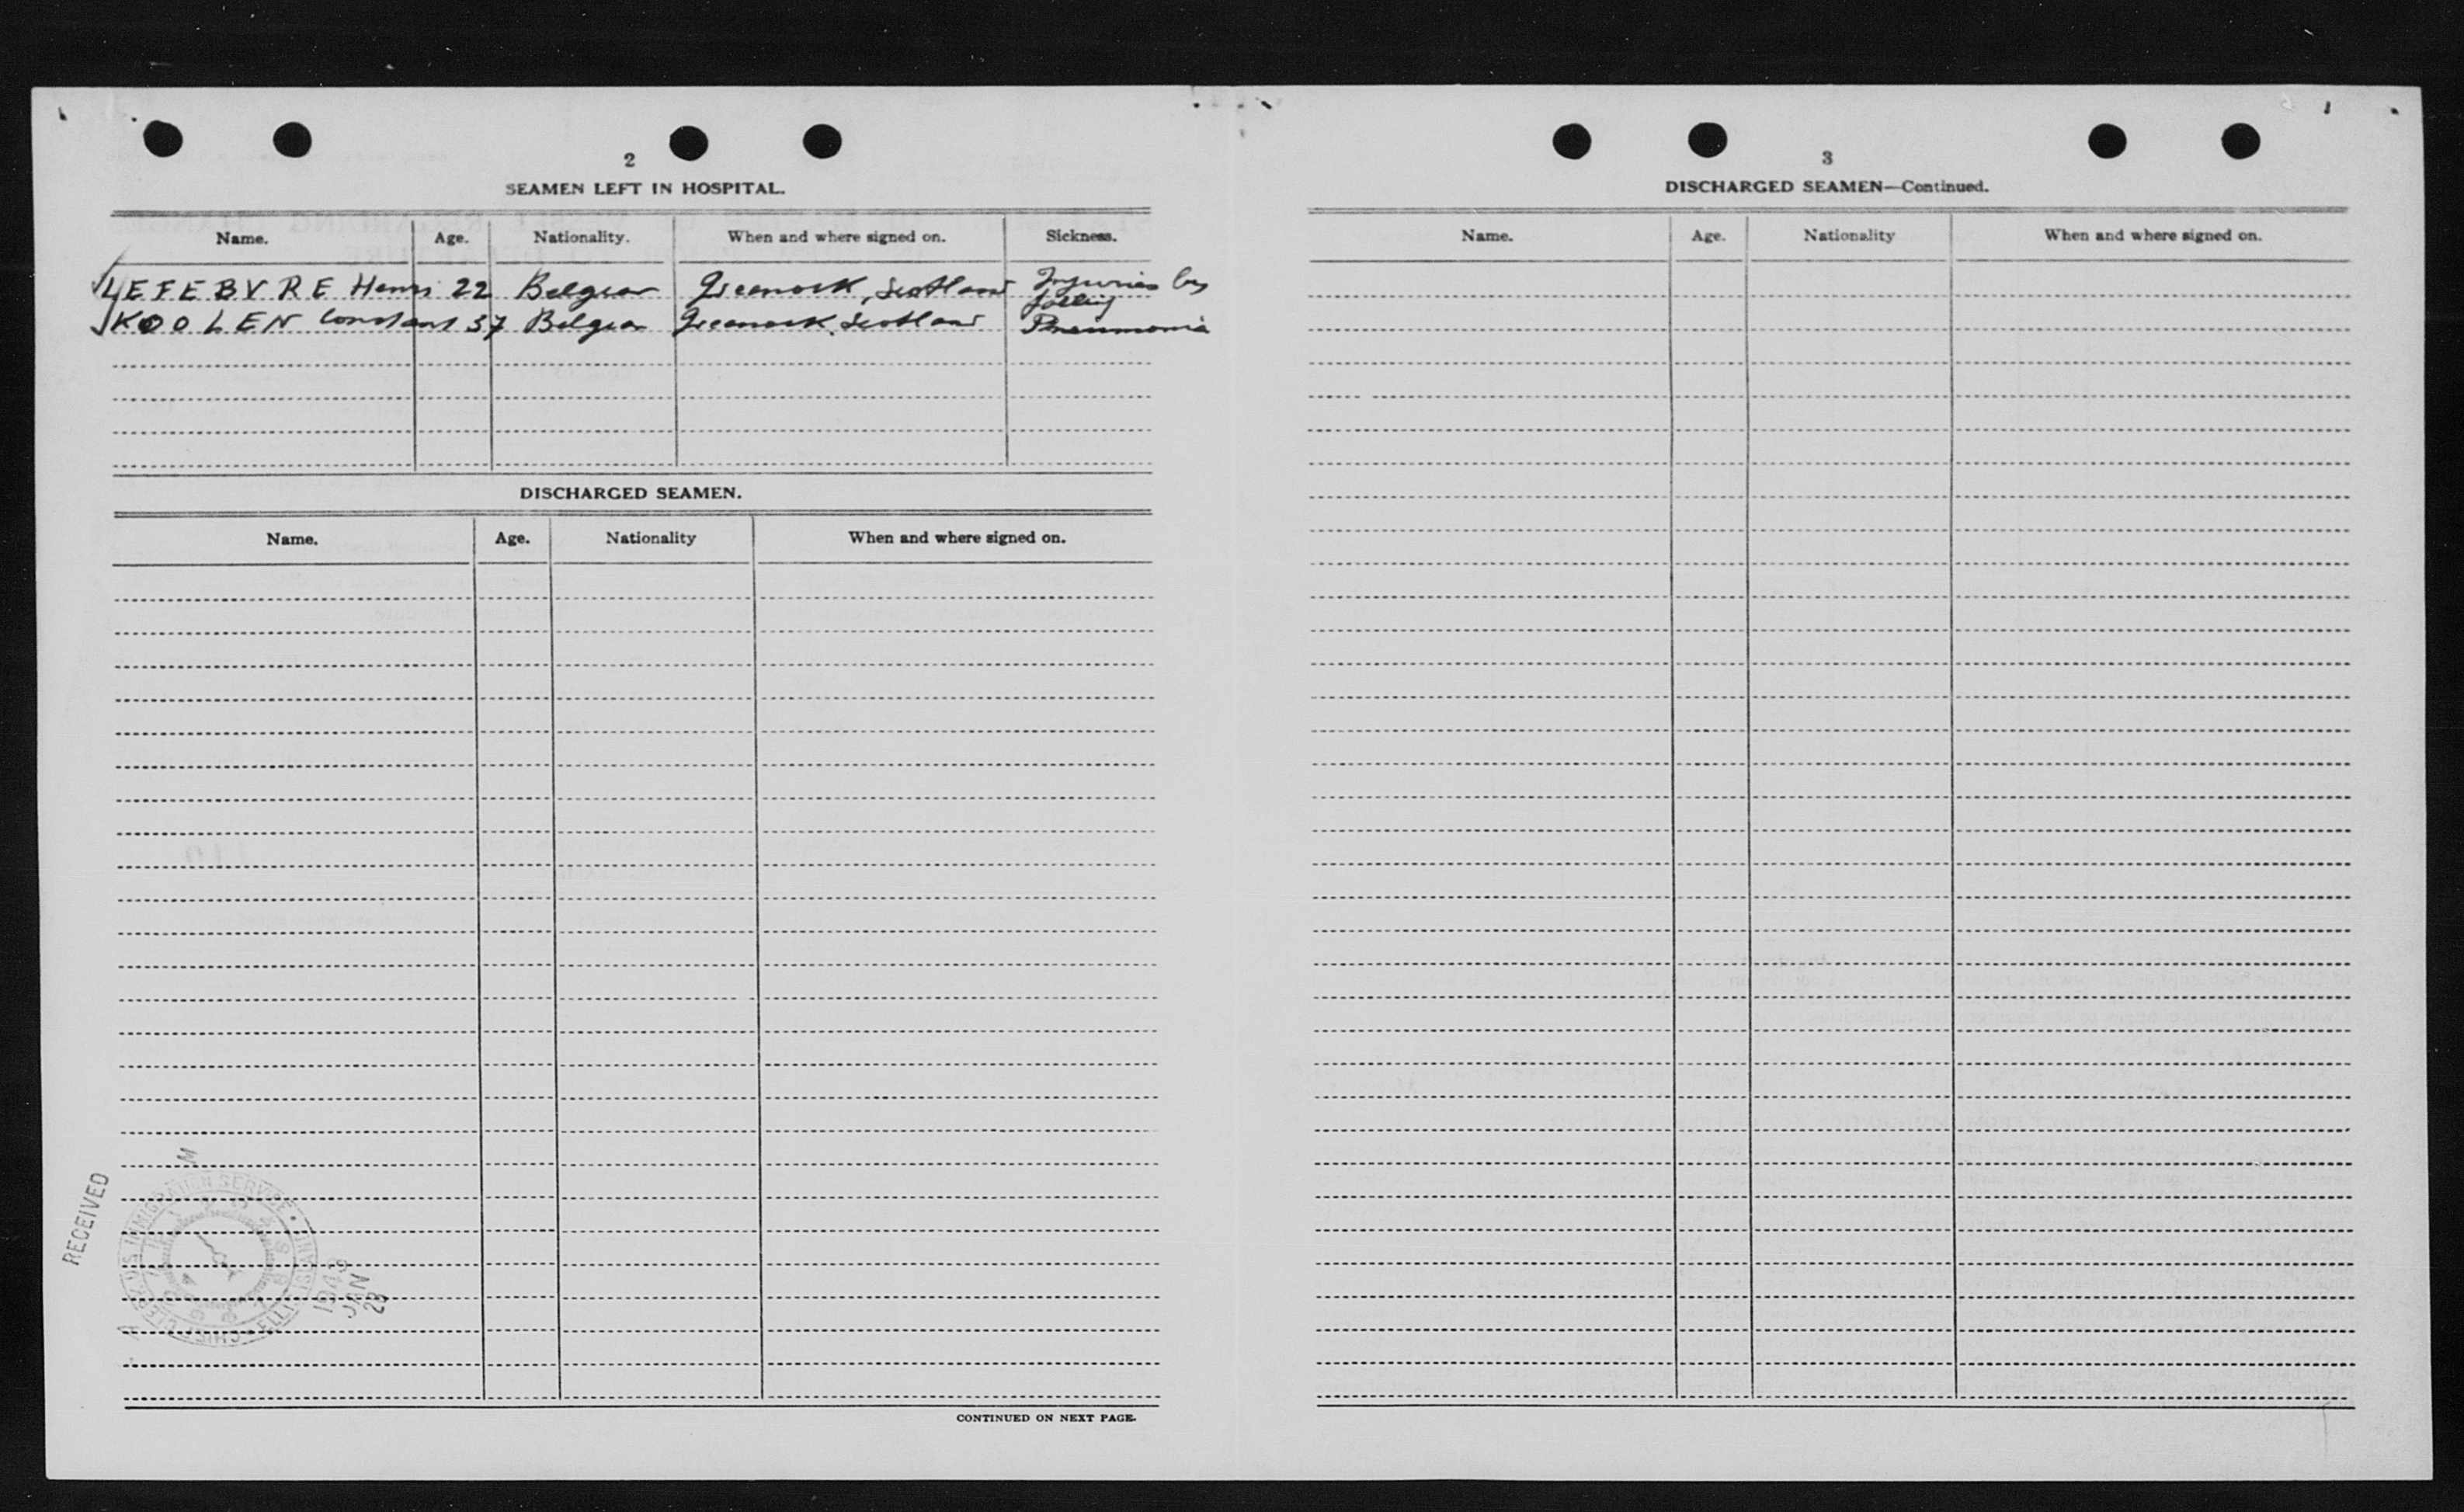 2
SEAMEN LEFT IN HOSPITAL.
Name. Age. Nationality. When and where signed on. Sickness.
LEFEBVRE Henri 22 Belgian Greenock, Scotland Injuries by
falling
KOOLEN Constant 37 Belgian Greenock, Scotland Pneumonia
DISCHARGED SEAMEN.
Name. Age. Nationality When and where signed on.
RECEIVED
M
U.S. IMMIGRATION SERVICE
CHIEF CLERK
ELLIS ISLAND
1943
JAN
23
CONTINUED ON NEXT PAGE.
3
DISCHARGED SEAMEN—Continued.
Name. Age. Nationality When and where signed on.